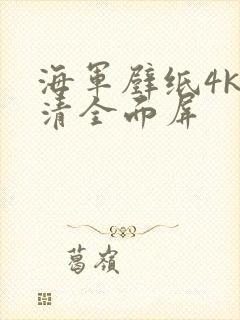 海军壁纸4K
清全面屏
葛嶺